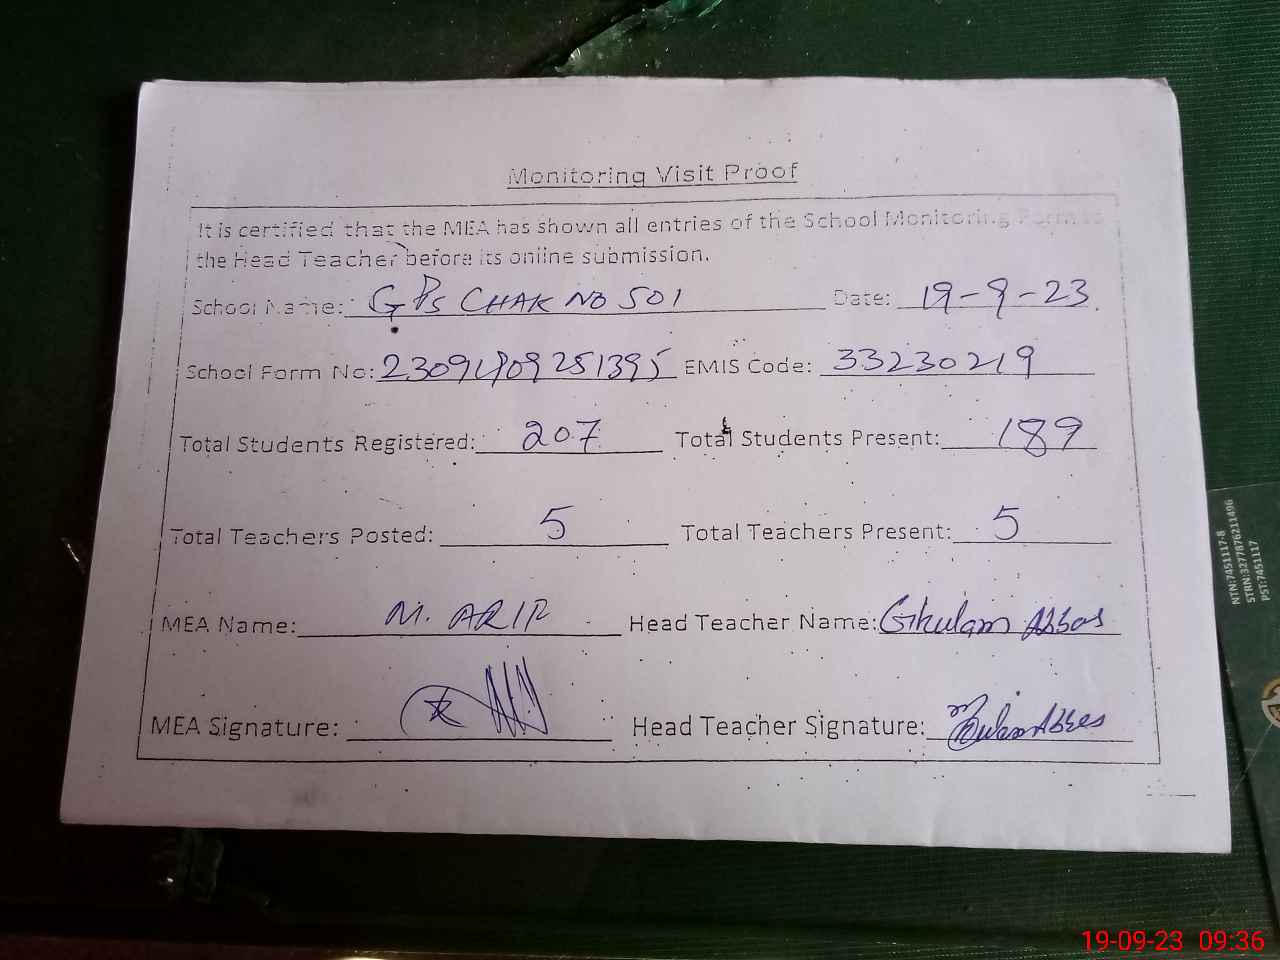 Monitoring Visit Proof
It is certified that the MEA has shown all entries of the School Monitoring Form to
the Head Teacher before its online submission.
School Name: GPS CHAK NO 501 Date: 19-9-23
School Form No: EMIS Code: 33230219
Total Students Registered: 207 Total Students Present: 189
Total Teachers Posted: 5 Total Teachers Present: 5
MEA Name: M. ARIF Head Teacher Name: Ghulam Abbas
MEA Signature: Head Teacher Signature: Ghulam Abbas
NTN:7451117-8
STRN:3277876211496
PST:7451117
19-09-23 09:36